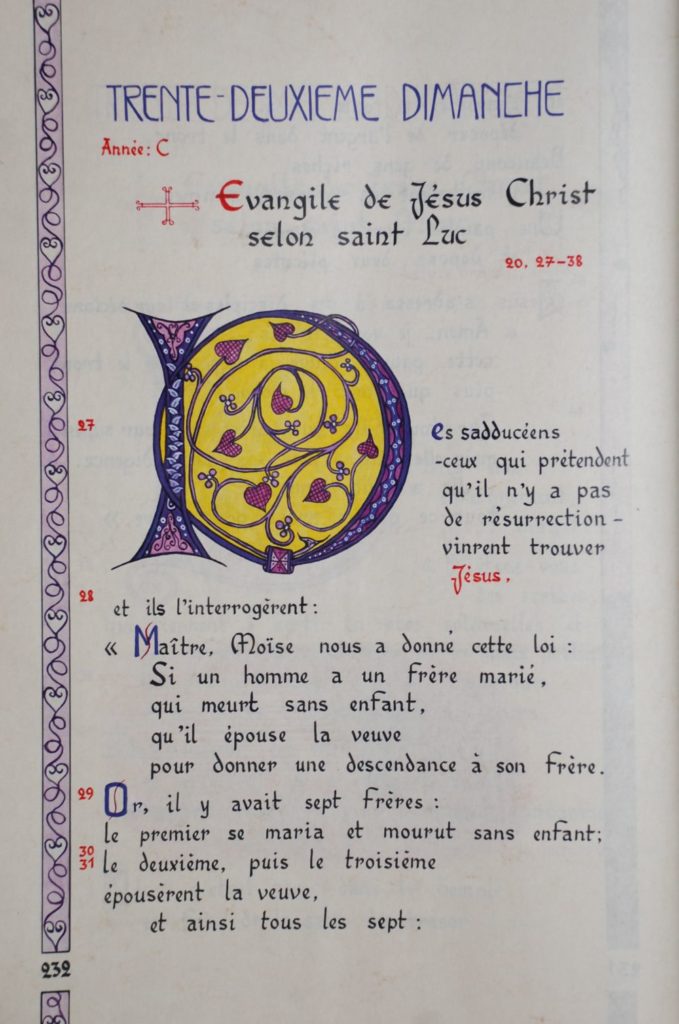 TRENTE-DEUXIEME DIMANCHE
Année: C
Evangile de Jésus Christ
selon saint Luc
20, 27-38
27
Des sadducéens
-ceux qui prétendent
qu'il n'y a pas
de résurrection-
vinrent trouver
Jésus,
28
et ils l'interrogèrent:
« Maître, Moïse nous a donné cette loi :
Si un homme a un frère marié,
qui meurt sans enfant,
qu'il épouse la veuve
pour donner une descendance à son frère.
29 Or, il y avait sept frères :
le premier se maria et mourut sans enfant;
30
31 le deuxième, puis le troisième
épousèrent la veuve,
et ainsi tous les sept :
232